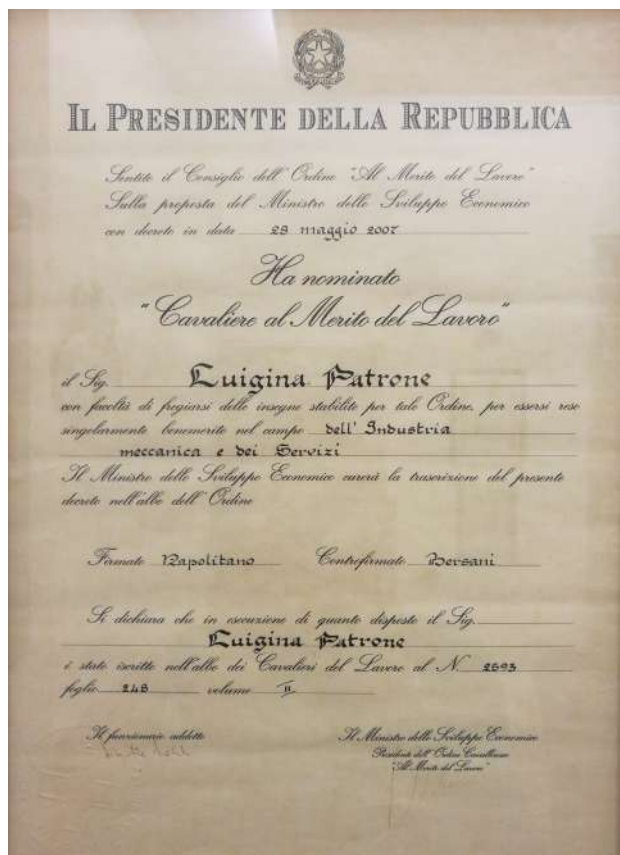 IL PRESIDENTE DELLA REPUBBLICA
Sentito il Consiglio dell'Ordine "Al Merito del Lavoro"
Sulla proposta del Ministro dello Sviluppo Economico
con decreto in data 29 maggio 2007
Ha nominato
"Cavaliere al Merito del Lavoro"
il Sig. Luigina Patrone
con facoltà di fregiarsi delle insegne stabilite per tale Ordine, per essersi reso
singolarmente benemerito nel campo dell'Industria
meccanica e dei Servizi
Il Ministro dello Sviluppo Economico curerà la trascrizione del presente
decreto nell'albo dell'Ordine
Firmato Napolitano Controfirmato Bersani
Si dichiara che in esecuzione di quanto disposto il Sig.
Luigina Patrone
è stato iscritto nell'albo dei Cavalieri del Lavoro al N. 2693
foglio 248 volume II
Il funzionario addetto
Il Ministro dello Sviluppo Economico
Presidente dell'Ordine Cavalleresco
"Al Merito del Lavoro"